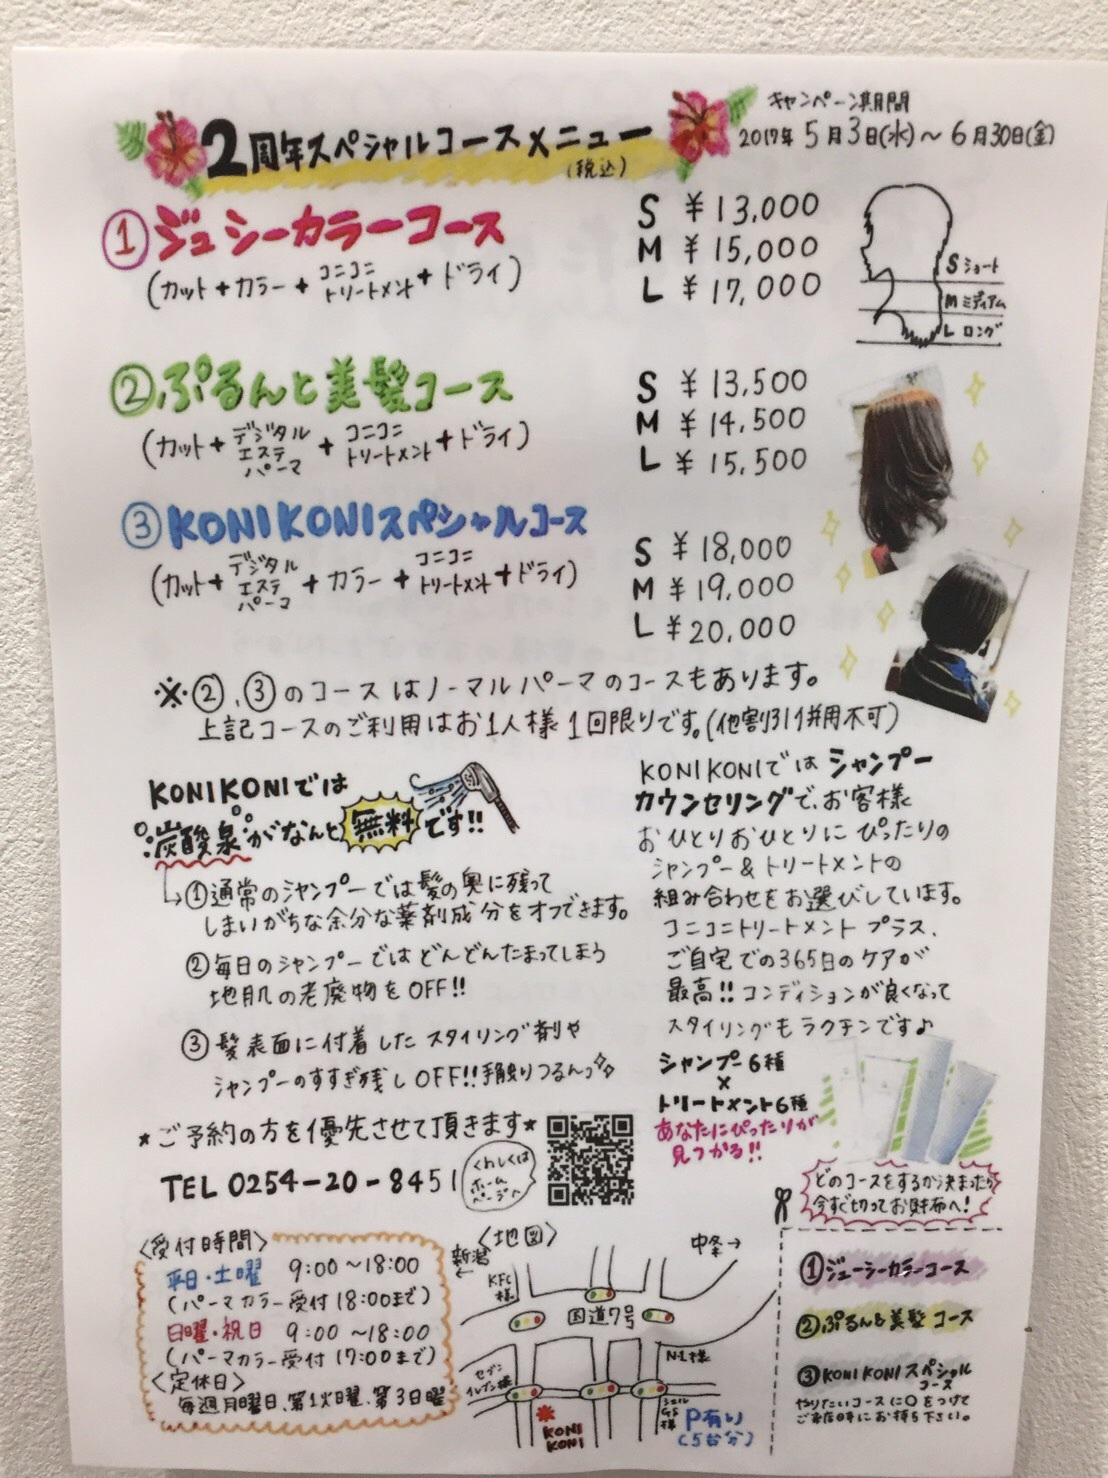 2周年スペシャルコースメニュー
(税込)
キャンペーン期間
2017年 5月3日(水)～6月30日(金)
①ジューシーカラーコース
(カット+カラー+コニコニトリートメント+ドライ)
S ¥13,000
M ¥15,000
L ¥17,000
S ショート
M ミディアム
L ロング
②ぷるんと美髪コース
(カット+デジタルエステパーマ+コニコニトリートメント+ドライ)
S ¥13,500
M ¥14,500
L ¥15,500
③KONIKONIスペシャルコース
(カット+デジタルエステパーマ+カラー+コニコニトリートメント+ドライ)
S ¥18,000
M ¥19,000
L ¥20,000
※②、③のコースはノーマルパーマのコースもあります。
上記コースのご利用はお1人様1回限りです。(他割引併用不可)
KONIKONIでは
炭酸泉がなんと無料です!!
①通常のシャンプーでは髪の奥に残って
しまいがちな余分な薬剤成分をオフできます。
②毎日のシャンプーではどんどんたまってしまう
地肌の老廃物をOFF!!
③髪表面に付着したスタイリング剤や
シャンプーのすすぎ残しOFF!!手触りつるんっ
KONIKONIではシャンプー
カウンセリングで、お客様
おひとりおひとりにぴったりの
シャンプー&トリートメントの
組み合わせをお選びしています。
コニコニトリートメントプラス、
ご自宅での365日のケアが
最高!!コンディションが良くなって
スタイリングもラクチンです♪
シャンプー6種
×
トリートメント6種
あなたにぴったりが
見つかる!!
★ご予約の方を優先させて頂きます★
TEL 0254-20-8451
くわしくは
ホーム
ページへ
どのコースをするか決まったら
今すぐ切ってお財布へ!
〈受付時間〉
平日・土曜 9:00～18:00
(パーマカラー受付18:00まで)
日曜・祝日 9:00～18:00
(パーマカラー受付17:00まで)
〈定休日〉
毎週月曜日、第1火曜、第3日曜
〈地図〉
新潟
←
中条→
KFC様
国道7号
N-1様
セブンイレブン様
シェルGS様
KONI
KONI
P有り
(5台分)
①ジューシーカラーコース
②ぷるんと美髪コース
③KONIKONIスペシャル
コース
やりたいコースに○をつけて
ご来店時にお持ち下さい。